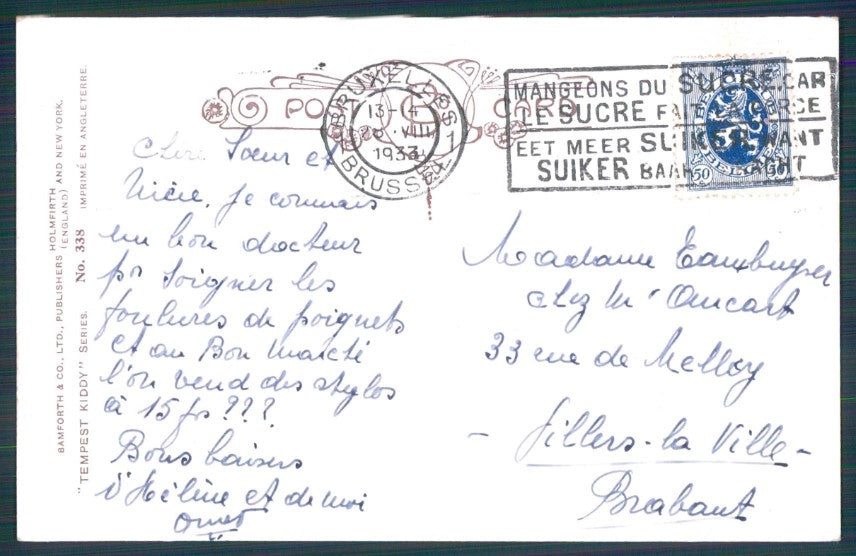 POST CARD
BRUXELLES 1
13-14
VIII
1933
BRUSSEL
MANGEONS DU SUCRE, CAR
LE SUCRE FA RCE
EET MEER SUIKER, WANT
SUIKER BAA HT
BELGIQUE
BELGIË
50 50
Chère Sœur et
Nièce, je connais
un bon docteur
pr soigner les
foulures de poignets
et au Bon Marché
l'on vend des stylos
à 15 frs ???
Bons baisers
d'Hélène et de moi
Madame
chez Mr
33 rue de Melloy
- Villers-la Ville -
Brabant
BAMFORTH & CO., LTD., PUBLISHERS HOLMFIRTH (ENGLAND) AND NEW YORK.
"TEMPEST KIDDY" SERIES. No. 338 IMPRIMÉ EN ANGLETERRE.